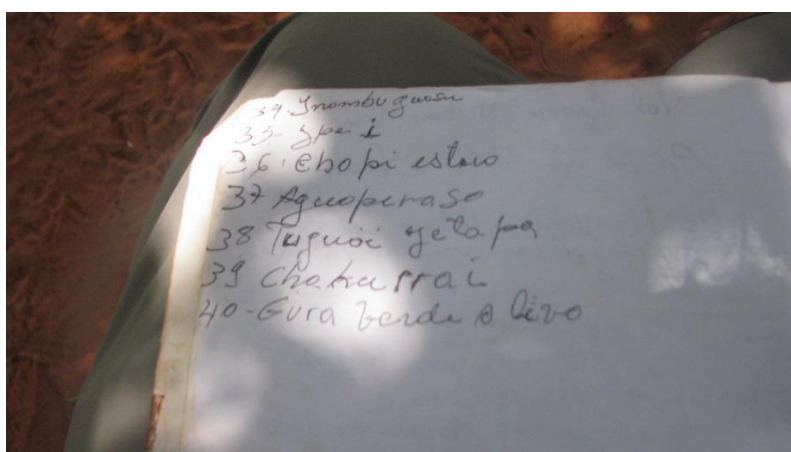 34-Ynambu guasu
35-ype i
36. Chopi estero
37 Aguapeaso
38 Tuguai yetapa
39 Chakurrai
40-Gura verde olivo